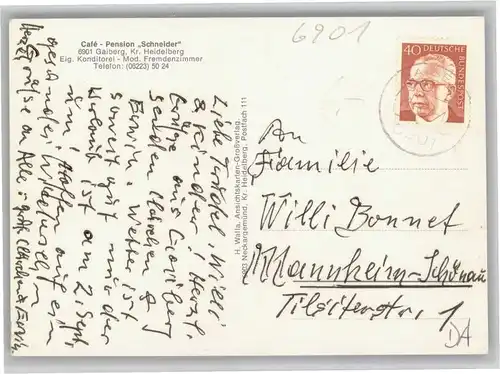 6901
Café - Pension „Schneider"
6901 Gaiberg, Kr. Heidelberg
Eig. Konditorei - Mod. Fremdenzimmer
Telefon: (06223) 50 24
40 DEUTSCHE BUNDESPOST
Liebe Trudel, Willi
& Kinder! Herzl.
Grüße aus Gaiberg
senden Klärchen &
Erwin. Wetter ist
soweit gut nur der
Urlaub ist am 2. Sept.
um. Hoffe auf ein
gesundes Wiedersehn
Herzl. Grüße an Alle
H. Walla, Ansichtskarten-Großverlag,
6903 Neckargemünd, Kr. Heidelberg, Postfach 111
An
Familie
Willi Bonnet
Mannheim-Schönau
Tilsiterstr. 1
DA